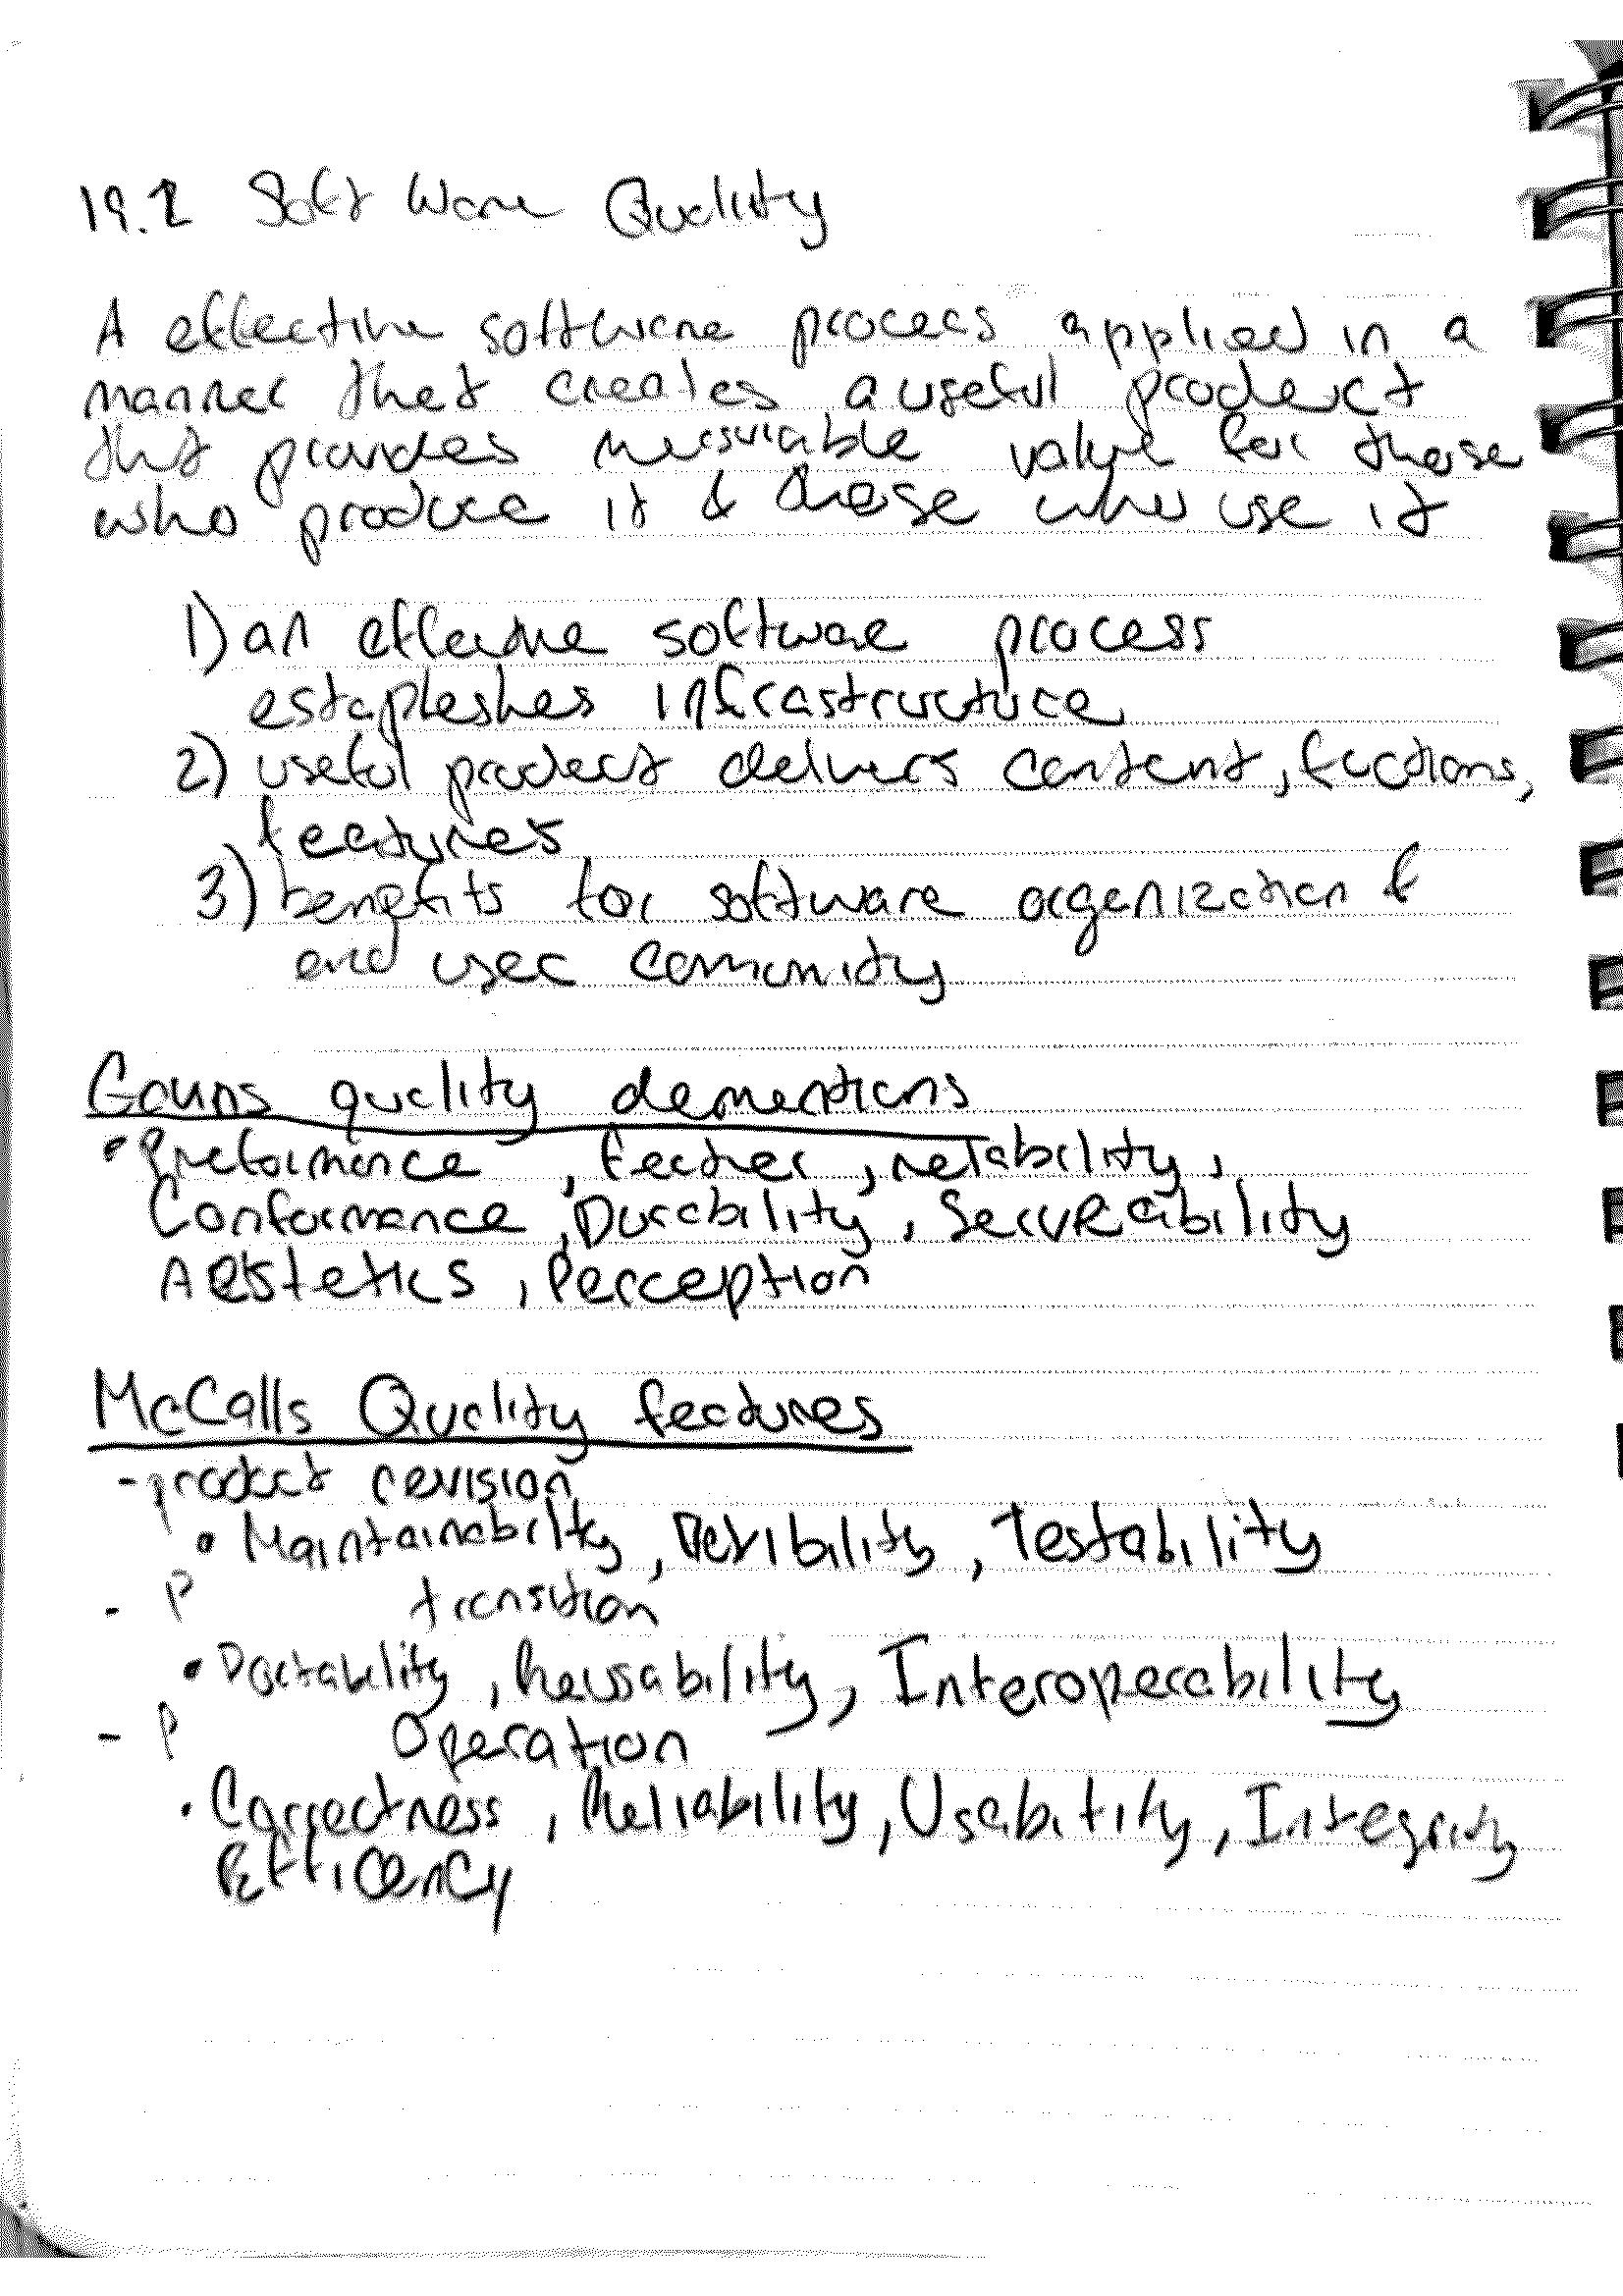 19.2 Software Quality
A effective software process applied in a
manner that creates a useful product
that provides mesurable value for those
who produce it & those who use it
1) an effective software process
estapleshes infrastructure
2) useful product delivers content, fuctions,
features
3) benefits for software organization &
end user comunity
Gavins quality dementions
• Preformance, feather, reliability,
Conformance, Durability, Serviceability
Aestetics, Perception
McCalls Quality features
- product revision
• Maintainabilty, flexibility, Testability
- P transition
• Portability, Reusability, Interoperability
- P Operation
• Correctness, Reliability, Usability, Integrity
Efficency